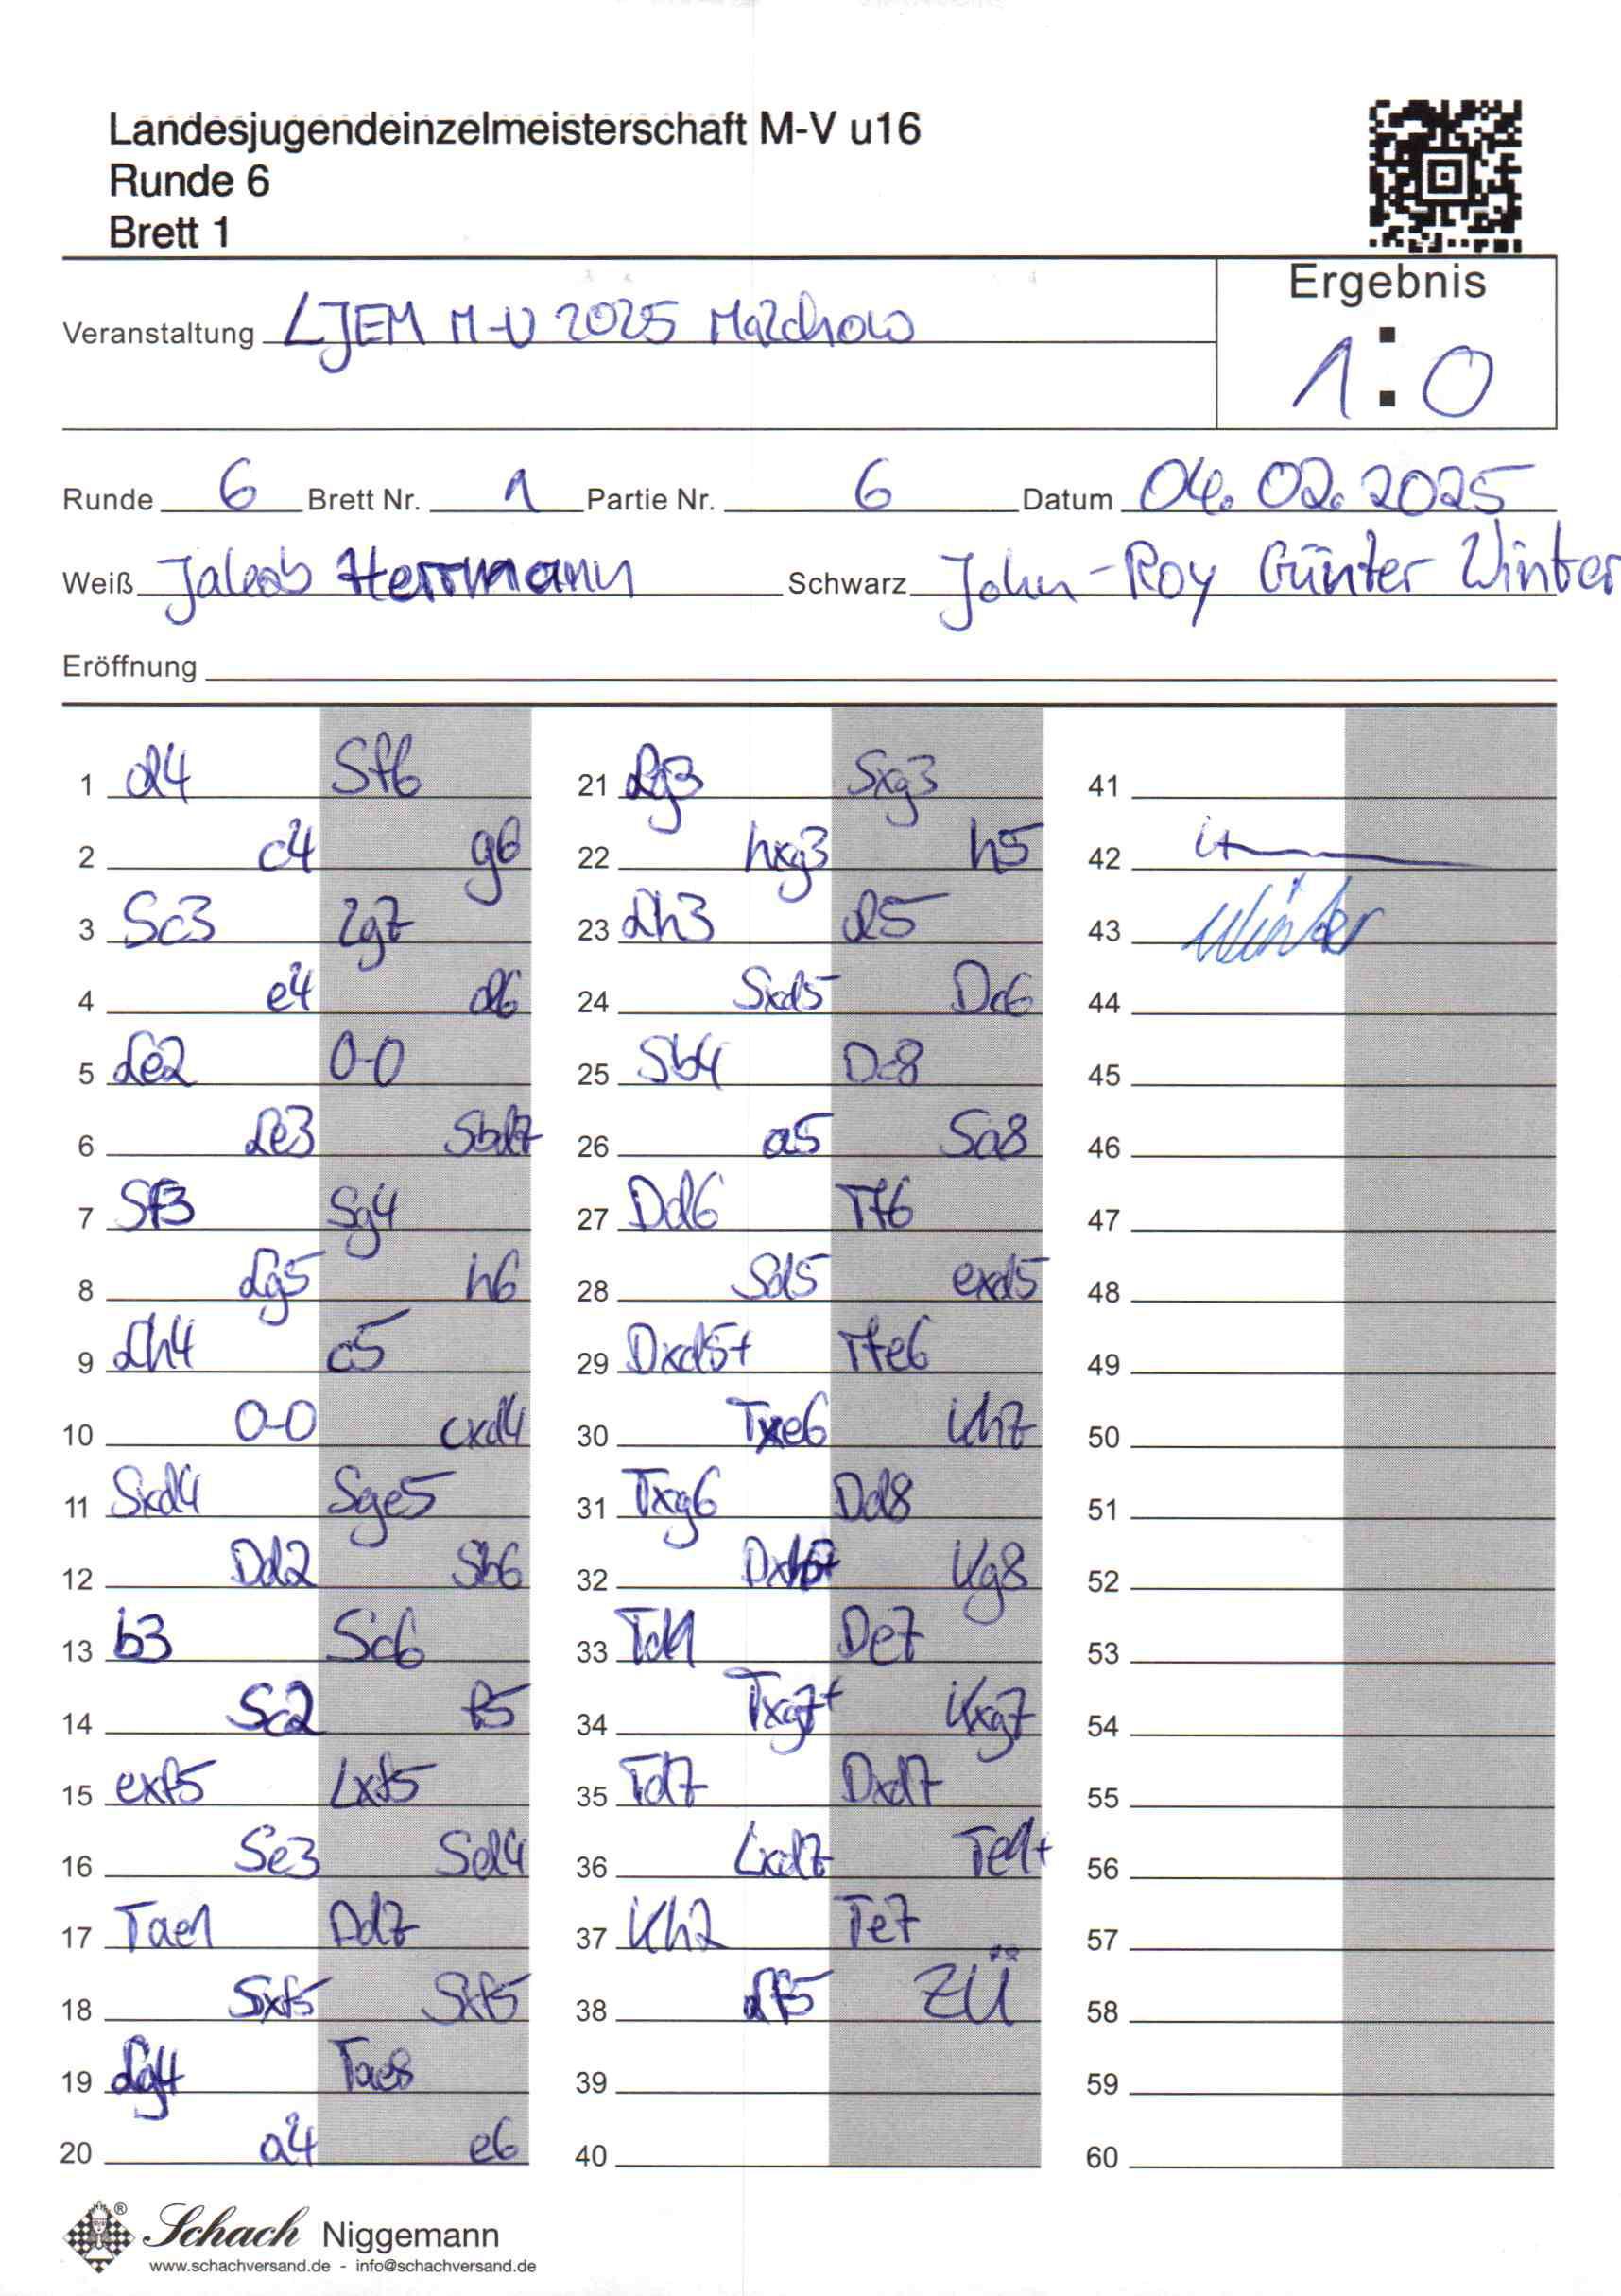 Landesjugendeinzelmeisterschaft M-V u16
Runde 6
Brett 1
Ergebnis
Veranstaltung LJEM M-V 2025 Malchow
1:0
Runde 6 Brett Nr. 1 Partie Nr. 6 Datum 04.02.2025
Weiß Jakob Herrmann Schwarz John-Roy Günter Winter
Eröffnung
1 d4 Sf6
2 c4 g6
3 Sc3 Lg7
4 e4 d6
5 Le2 0-0
6 Le3 Sbd7
7 Sf3 Sg4
8 Lg5 h6
9 Lh4 c5
10 0-0 cxd4
11 Sxd4 Sge5
12 Dd2 Sb6
13 b3 Sc6
14 Sc2 f5
15 exf5 Lxf5
16 Se3 Sd4
17 Tae1 Dd7
18 Sxf5 Sxf5
19 Lg4 Tae8
20 a4 e6
21 Lg3 Sxg3
22 hxg3 h5
23 Lh3 d5
24 Sxd5 Dc6
25 Sb4 Dc8
26 a5 Sa8
27 Dd6 Tf6
28 Sd5 exd5
29 Dxd5+ Tfe6
30 Txe6 Kh7
31 Txg6 Dd8
32 Dxh5+ Kg8
33 Td1 De7
34 Txg7+ Kxg7
35 Td7 Dxd7
36 Lxd7 Te1+
37 Kh2 Te7
38 Lf5 ZÜ
39
40
41
42
43 Winter
44
45
46
47
48
49
50
51
52
53
54
55
56
57
58
59
60
Schach Niggemann
www.schachversand.de - info@schachversand.de